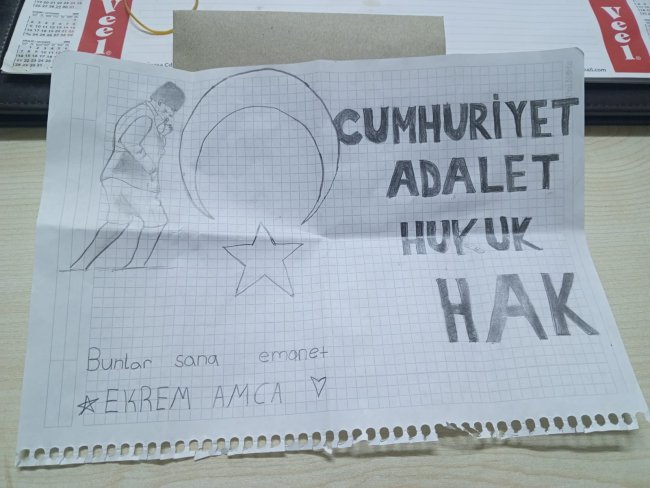 Veel
Veel
CUMHURİYET
ADALET
HUKUK
HAK
Bunlar sana emanet
EKREM AMCA